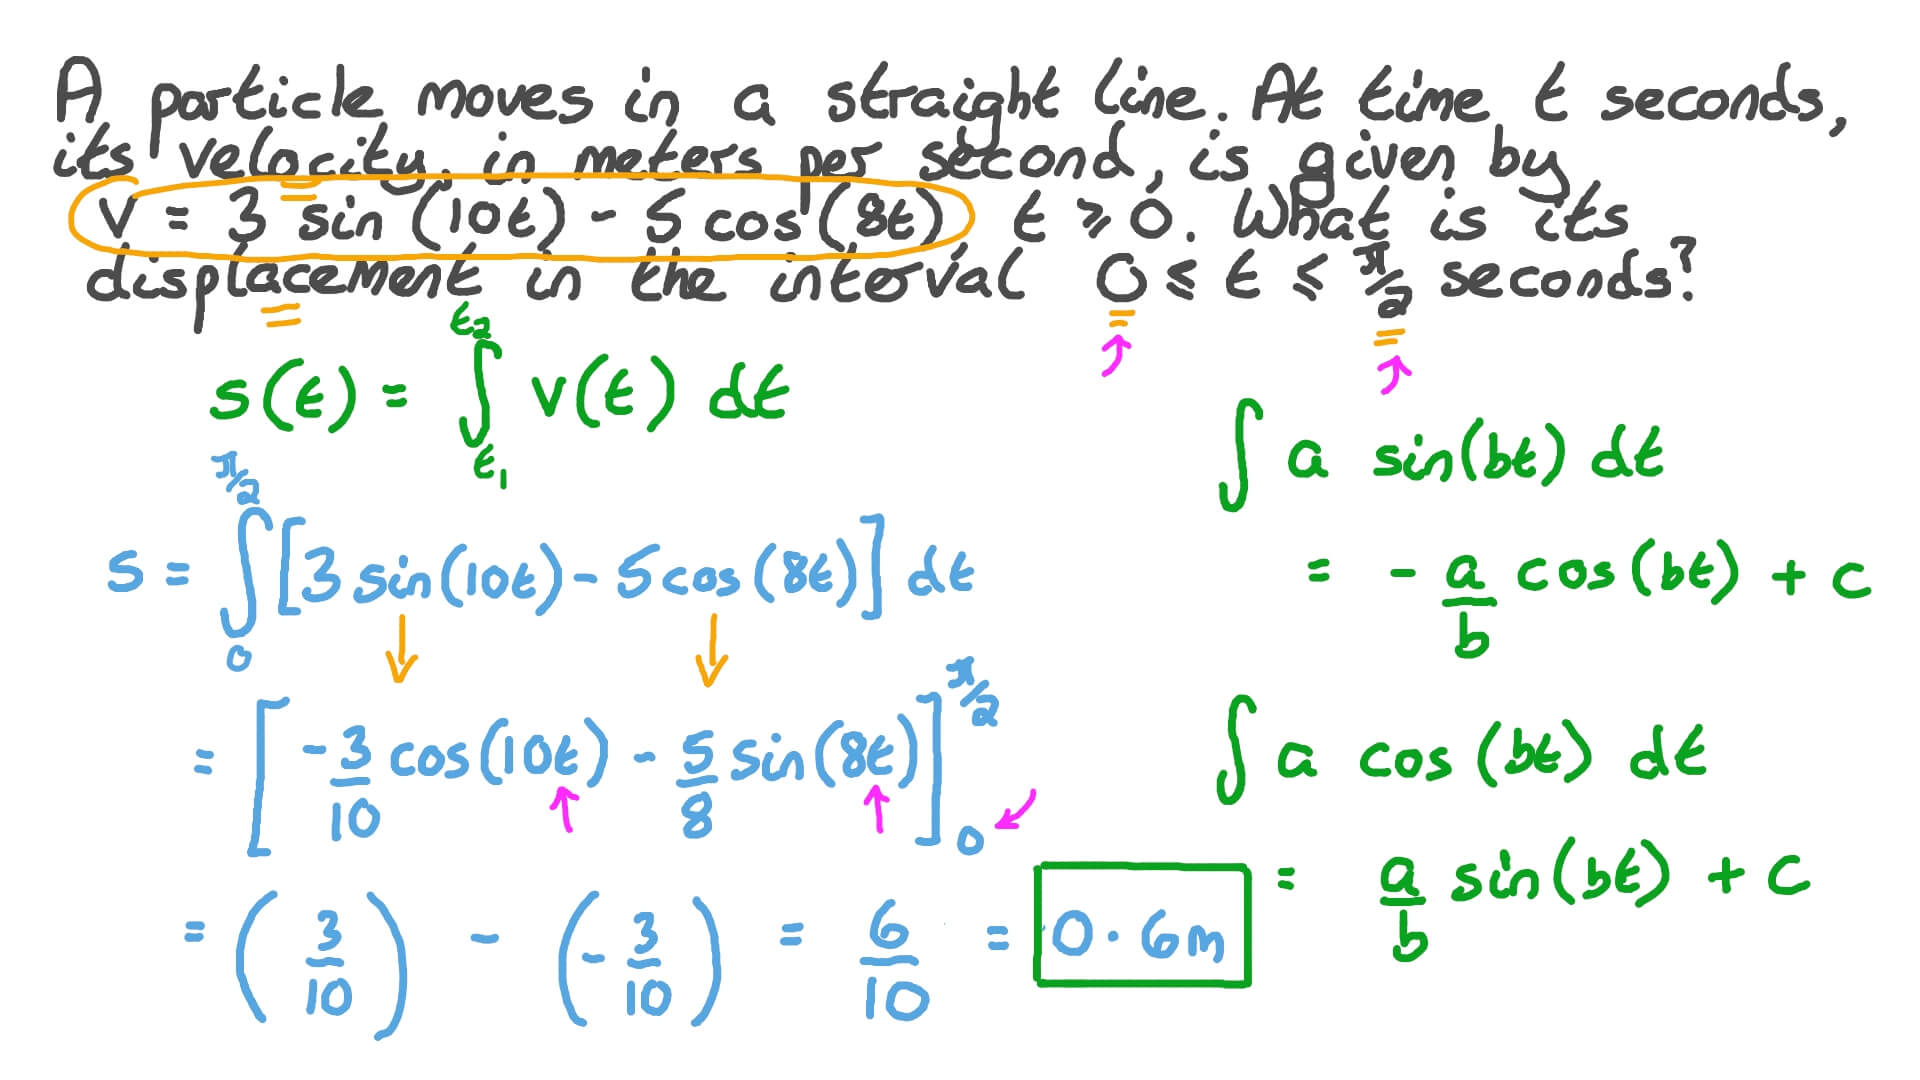 A particle moves in a straight line. At time t seconds,
its velocity, in meters per second, is given by
v = 3 sin (10t) - 5 cos (8t) t ⩾ 0. What is its
displacement in the interval 0 ⩽ t ⩽ π/2 seconds?
s(t) = ∫_{t₁}^{t₂} v(t) dt
∫ a sin(bt) dt
= - a/b cos(bt) + c
s = ∫_0^{π/2} [3 sin(10t) - 5 cos(8t)] dt
= [-3/10 cos(10t) - 5/8 sin(8t)]_0^{π/2}
∫ a cos(bt) dt
= a/b sin(bt) + c
= (3/10) - (-3/10) = 6/10 = 0.6m